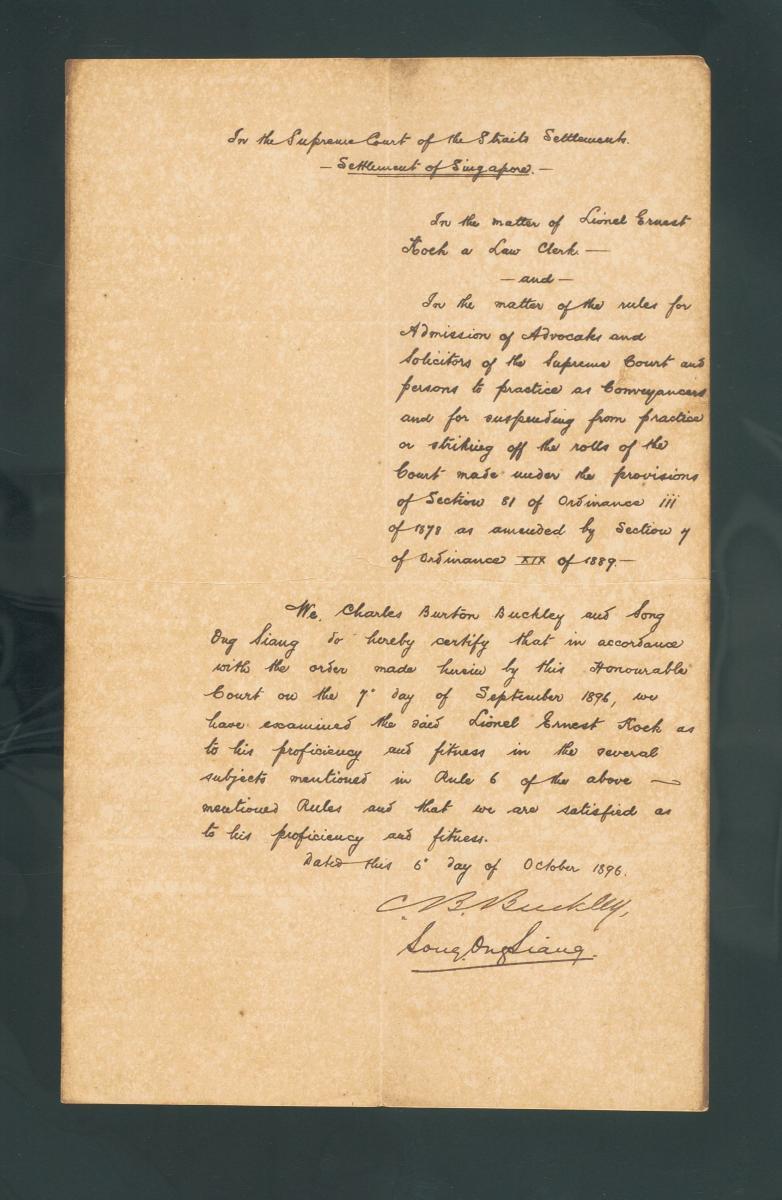 In the Supreme Court of the Straits Settlements.
— Settlement of Singapore. —
In the matter of Lionel Ernest
Koek a Law Clerk. —
— and —
In the matter of the rules for
Admission of Advocates and
Solicitors of the Supreme Court and
persons to practice as Conveyancers
and for suspending from practice
or striking off the rolls of the
Court made under the provisions
of Section 81 of Ordinance iii
of 1878 as amended by Section 7
of Ordinance XIX of 1889. —
We, Charles Burton Buckley and Song
Ong Siang do hereby certify that in accordance
with the order made herein by this Honourable
Court on the 7° day of September 1896, we
have examined the said Lionel Ernest Koek as
to his proficiency and fitness in the several
subjects mentioned in Rule 6 of the above —
mentioned Rules and that we are satisfied as
to his proficiency and fitness.
Dated this 6° day of October 1896.
C. B. Buckley,
Song Ong Siang.